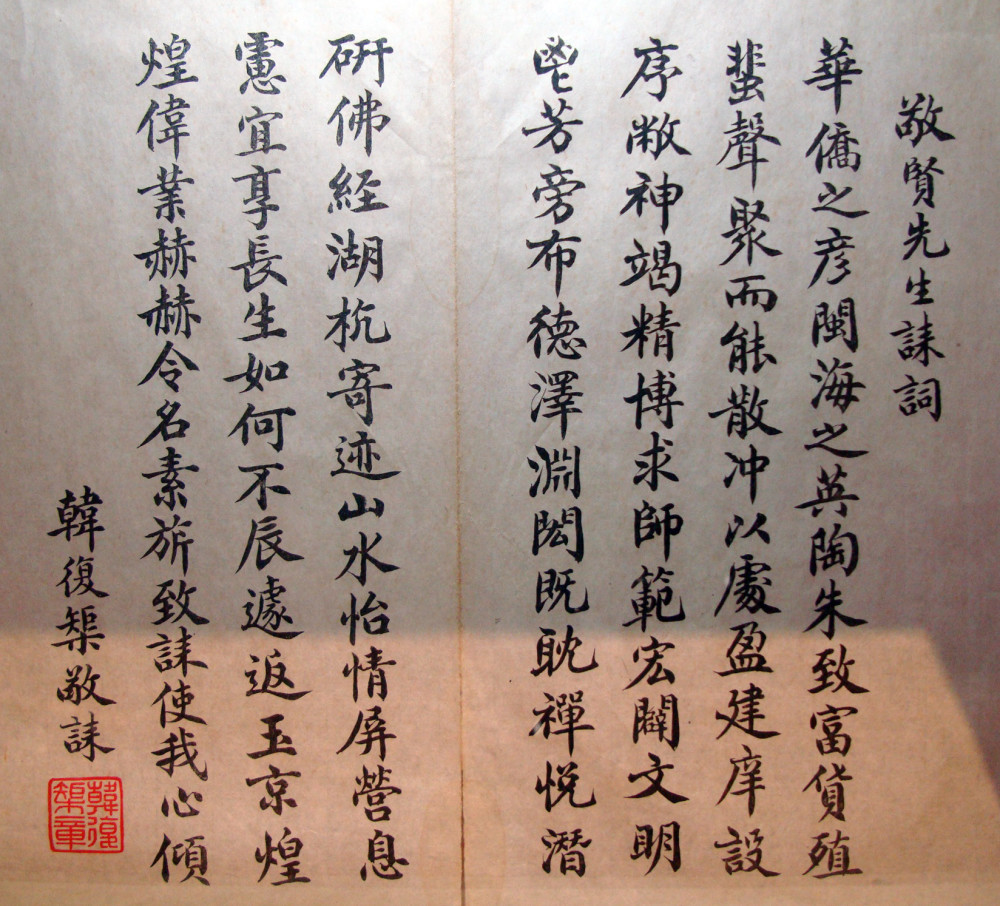 敬賢先生誄詞
華僑之彥閩海之英陶朱致富貨殖
蜚聲聚而能散冲以處盈建庠設
序敝神竭精博求師範宏闢文明
鬯芳旁布德澤淵閎既耽禪悅潛
研佛經湖杭寄迹山水怡情屏營息
慮宜享長生如何不辰遽返玉京煌
煌偉業赫赫令名素旂致誄使我心傾
韓復榘敬誄
韓復榘章